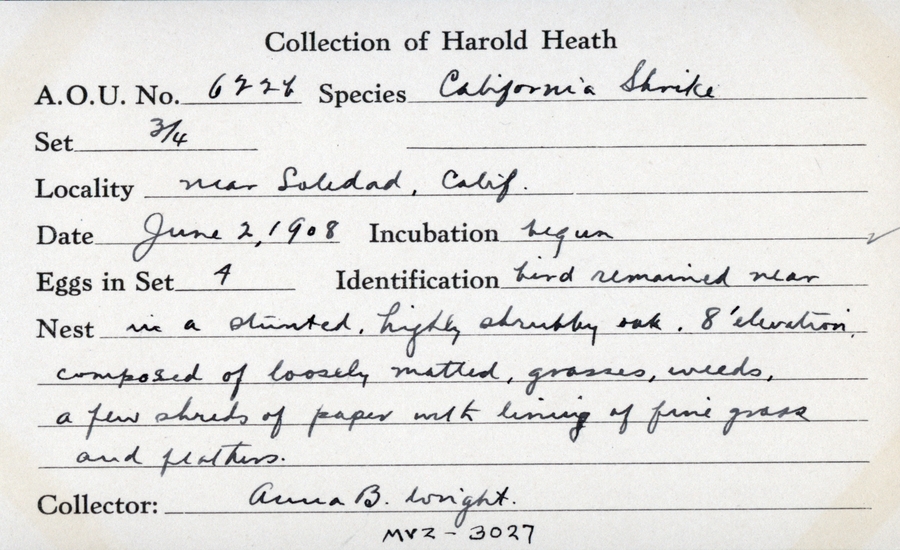 Collection of Harold Heath
A.O.U. No. 622b Species California Shrike
Set 3/4
Locality near Soledad, Calif.
Date June 2, 1908 Incubation begun
Eggs in Set 4 Identification bird remained near
Nest in a stunted, highly shrubby oak. 8' elevation,
composed of loosely matted, grasses, weeds,
a few shreds of paper with lining of fine grass
and feathers.
Collector: Anna B. Wright.
MVZ - 3027